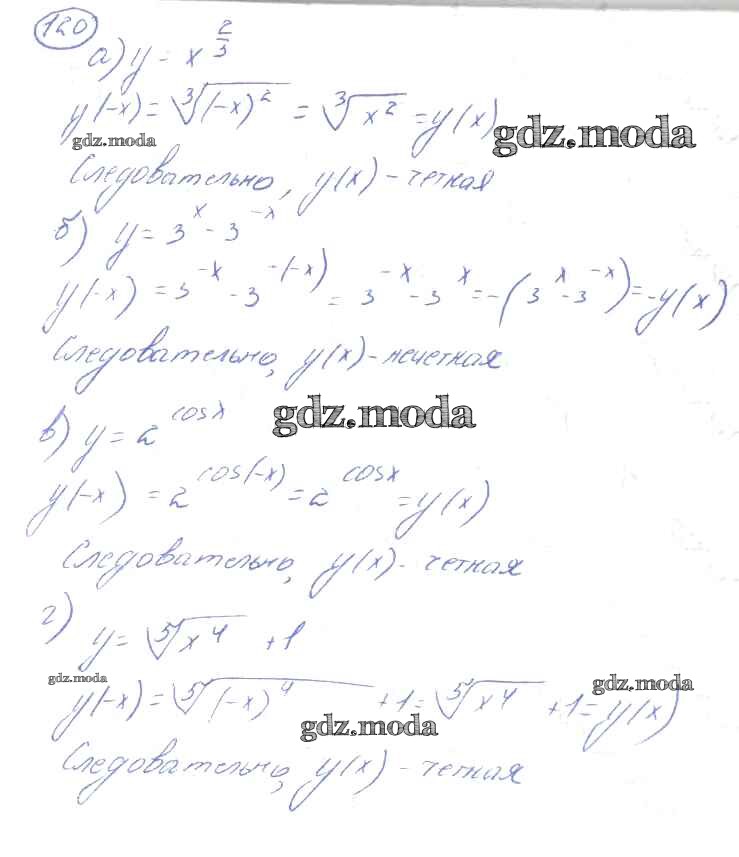 120
а) y = x^(2/3)
y(-x) = ∛((-x)²) = ∛(x²) = y(x)
gdz.moda
gdz.moda
Следовательно, y(x) - четная
б) y = 3^x - 3^(-x)
y(-x) = 3^(-x) - 3^(-(-x)) = 3^(-x) - 3^x = -(3^x - 3^(-x)) = -y(x)
Следовательно, y(x) - нечетная
gdz.moda
в) y = 2^(cosx)
y(-x) = 2^(cos(-x)) = 2^(cosx) = y(x)
Следовательно, y(x) - четная
г) y = ⁵√(x⁴) + 1
gdz.moda
y(-x) = ⁵√((-x)⁴) + 1 = ⁵√(x⁴) + 1 = y(x)
gdz.moda
gdz.moda
Следовательно, y(x) - четная